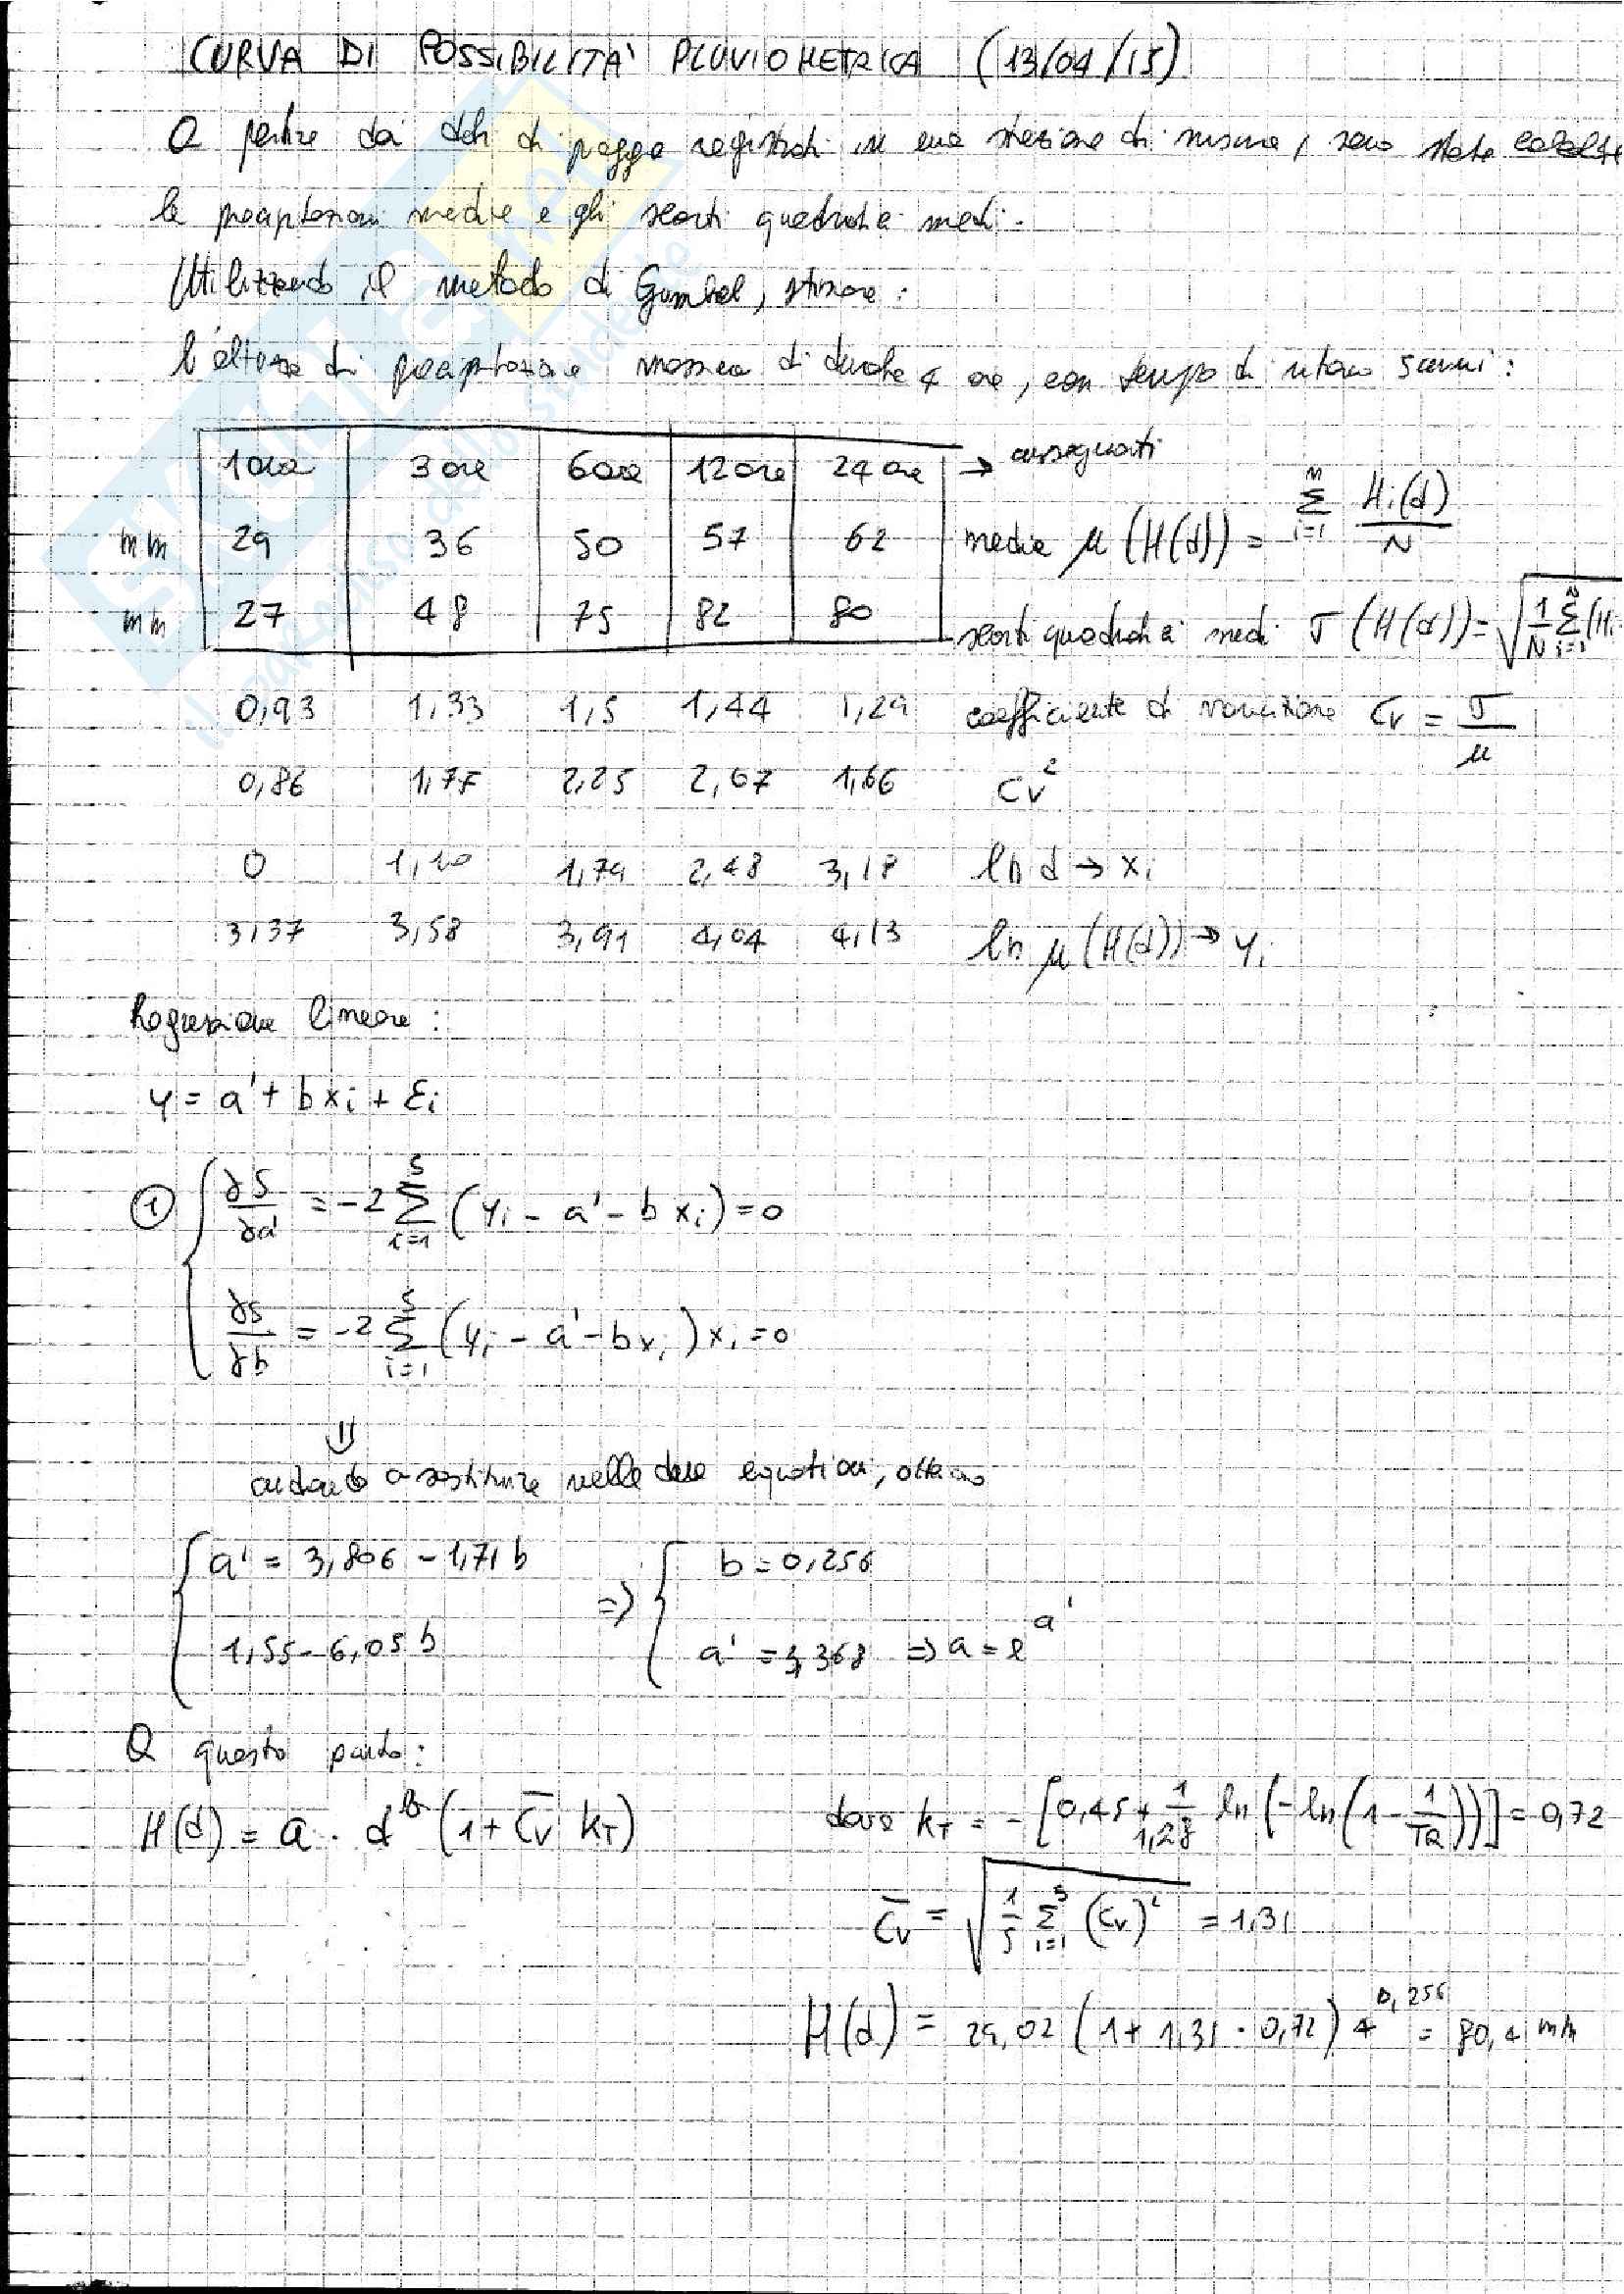 CURVA DI POSSIBILITA' PLUVIOMETRICA (13/04/15)
A partire dai dati di pioggia registrati in una stazione di misura, sono state
le precipitazioni medie e gli scarti quadratici medi.
Utilizzando il metodo di Gumbel, stimare:
l'altezza di precipitazione massima di durata 4 ore, con tempo di ritorno 5 anni:
1 ora 3 ore 6 ore 12 ore 24 ore → assegnati
mm 29 36 50 57 62 media μ(H(d)) = Σ i=1 N Hi(d)/N
mm 27 48 75 82 80 scarti quadratici medi σ(H(d)) = √ 1/N Σ i=1 N (Hi
0,93 1,33 1,5 1,44 1,29 coefficiente di variazione Cv = σ/μ
0,86 1,77 2,25 2,67 1,66 Cv²
0 1,10 1,79 2,48 3,18 ln d → xi
3,37 3,58 3,91 4,04 4,13 ln μ(H(d)) → yi
Regressione lineare:
y = a' + b xi + εi
① ∂S/∂a' = -2 Σ i=1 5 (yi - a' - b xi) = 0
∂S/∂b = -2 Σ i=1 5 (yi - a' - b xi) xi = 0
⇓
andando a sostituire nelle due equazioni, ottengo
a' = 3,806 - 1,71 b ⇒ b = 0,256
1,55 - 6,05 b a' = 3,368 ⇒ a = e^a'
A questo punto:
H(d) = a · d^b (1 + C̄v kT) dove kT = -[0,45 + 1/1,28 ln(-ln(1 - 1/TR))] = 0,72
C̄v = √ 1/5 Σ i=1 5 (Cv)² = 1,31
H(d) = 29,02 (1 + 1,31 · 0,72) 4^0,256 = 80,4 mm